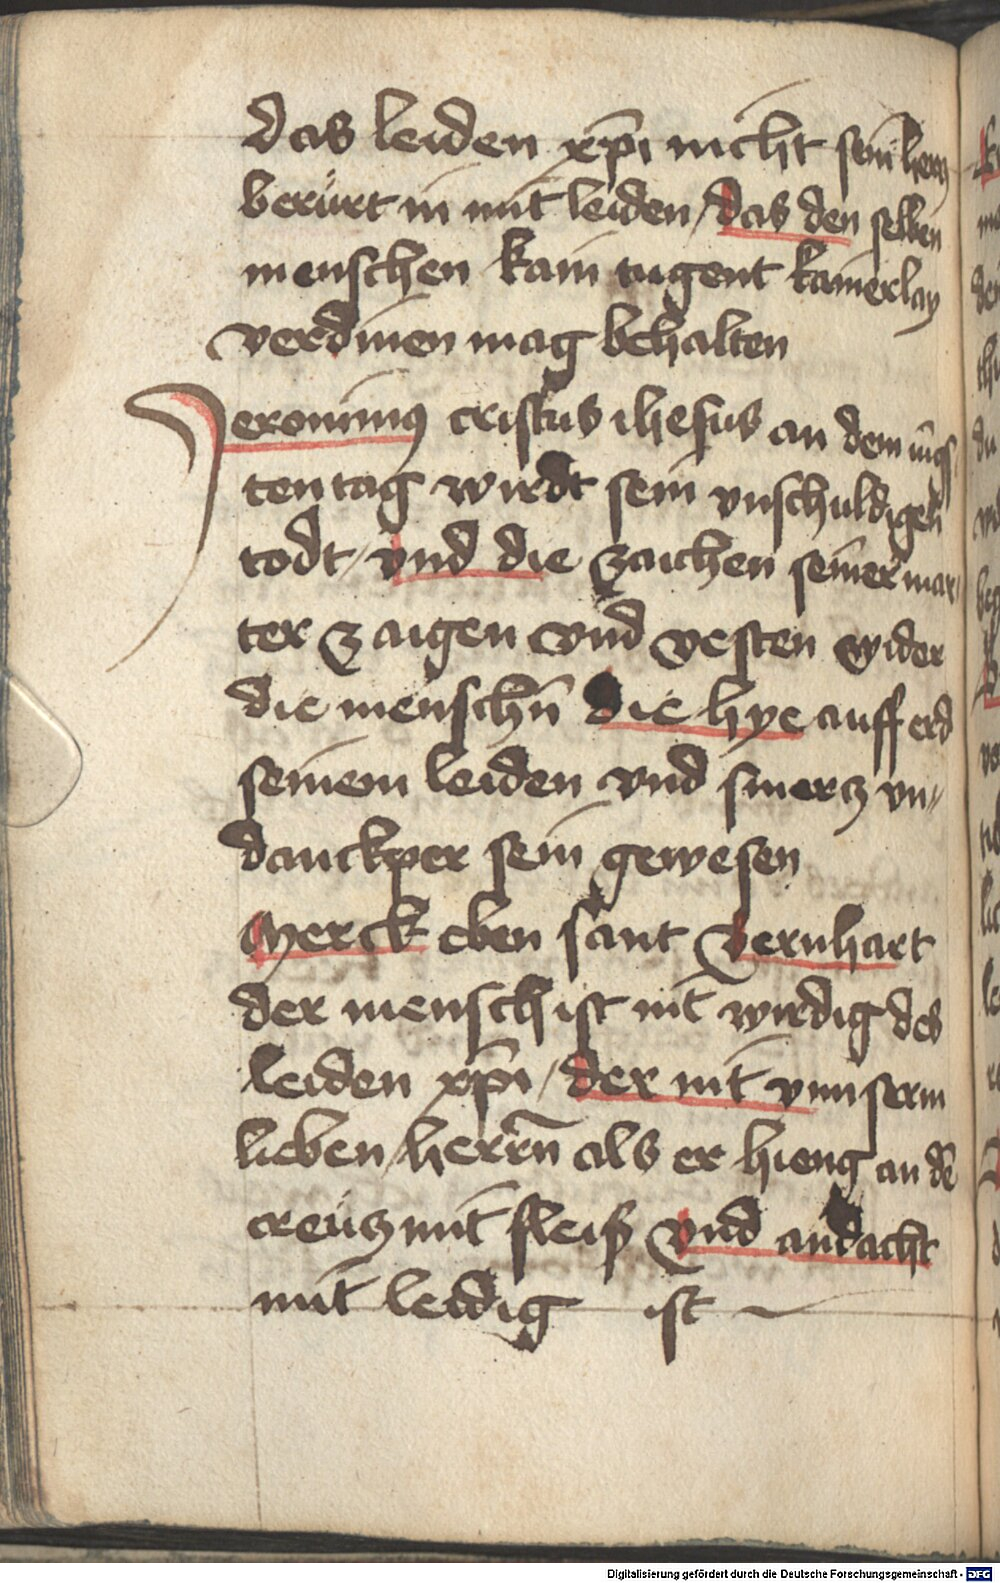 das leiden xp̄i nicht sein hercz
berürt in mit leiden / das den selben
menschen kain tugent kainerlay
verdinen mag behalten
Jeronimus cristus ihesus an dem iūgs
ten tag wirdt sein vnschuldigen
todt / vnd die zaichen seiner mar
ter zaigen vnd vesten wider
die menschn̄ die hye auff erd
seinem leiden vnd smercz vn„
danckper sein gewesen
Merck eben sant Bernhart
der mensch ist nit wirdig des
leiden xp̄i / der nit vnnserm
lieben herrn̄ als er hieng an dē
creücz mit fleiß vnd andacht
mit leidig ist
Digitalisierung gefördert durch die Deutsche Forschungsgemeinschaft - DFG